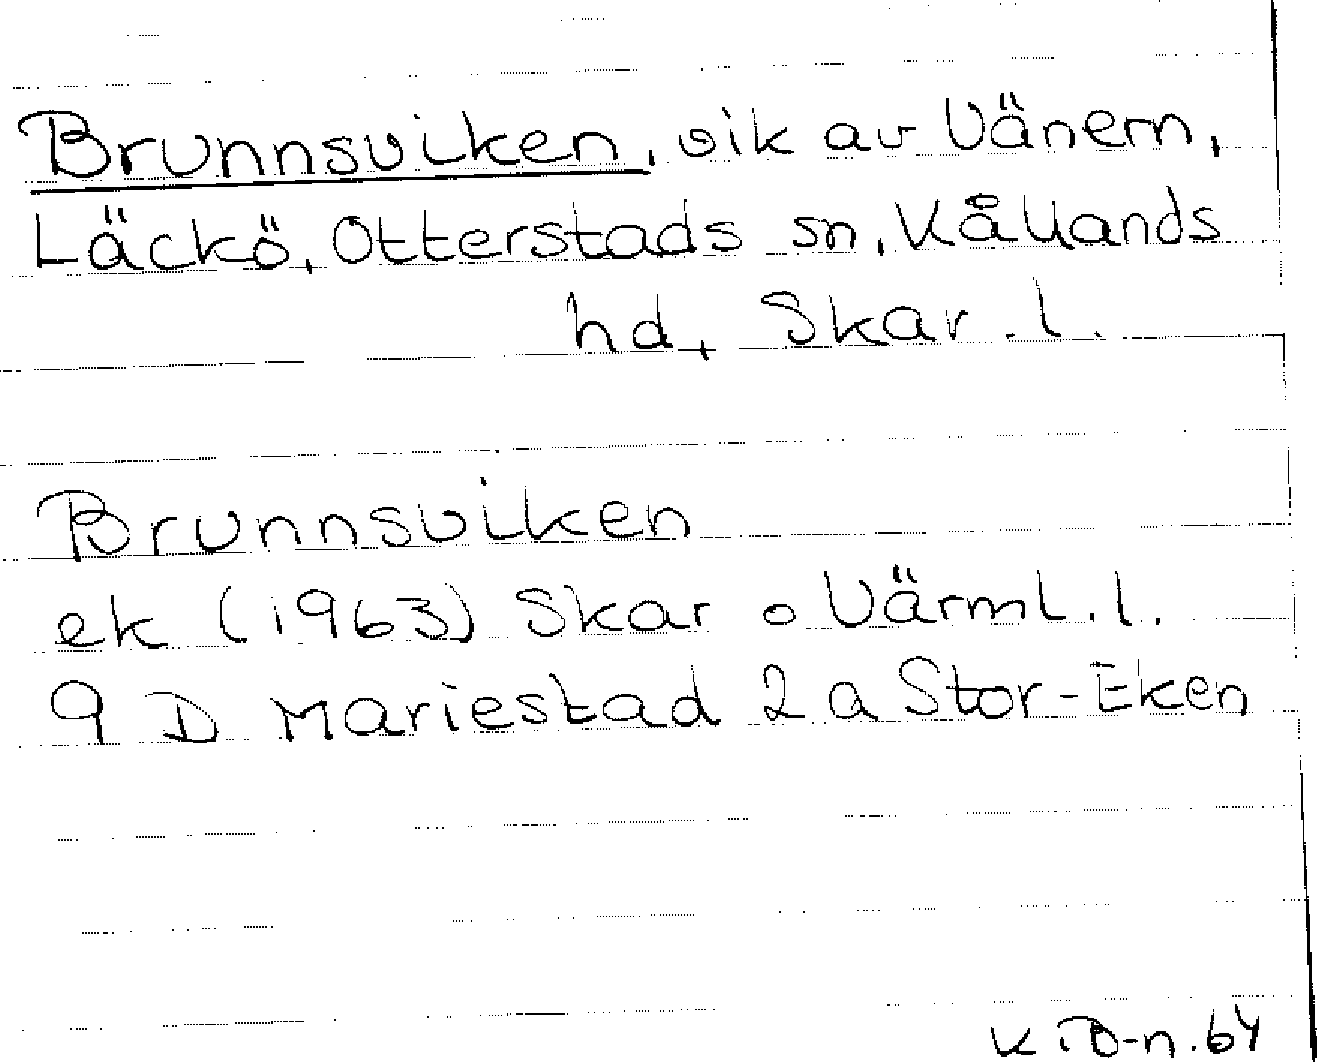 Brunnsviken, vik av Vänern,
Läckö, Otterstads sn, Kållands
hd, Skar. l.
Brunnsviken
ek (1963) Skar o Värml. l.
9 D Mariestad 2 a Stor-Eken
K.B-n.64